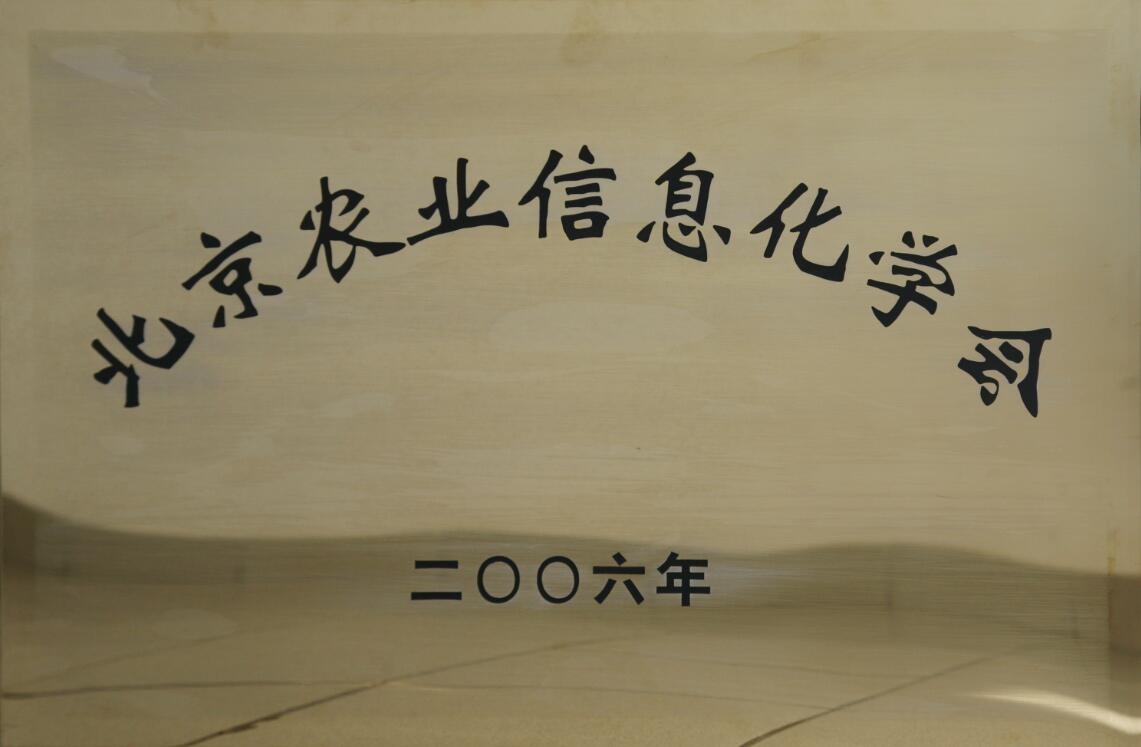 北京农业信息化学会
二〇〇六年